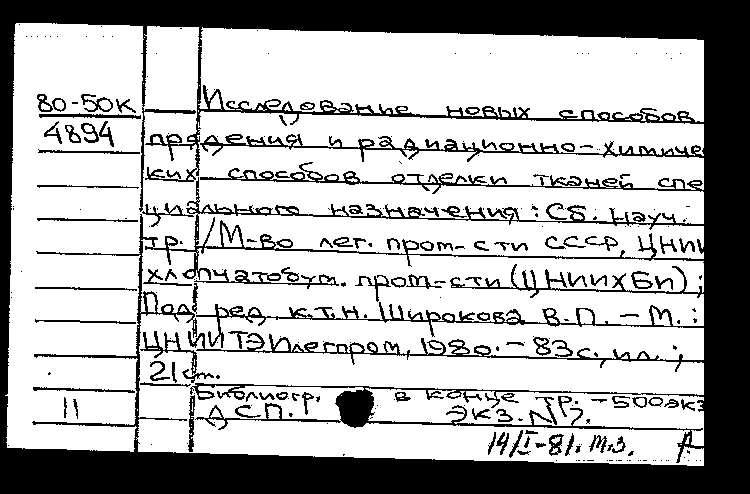 80-50К Исследование новых способов
4894 прядения и радиационно-химичес
ких способов отделки тканей спе
циального назначения: Сб. науч.
тр. /М-во лег. пром-сти СССР, ЦНИИ
хлопчатобум. пром-сти (ЦНИИХБИ);
Под ред. к.т.н. Широкова В.П. - М.:
ЦНИИТЭИлегпром, 1980. - 83с., ил.;
21 см.
Библиогр. в конце тр. - 500экз
11 ДСП. экз. №
14/I-81. т.з.